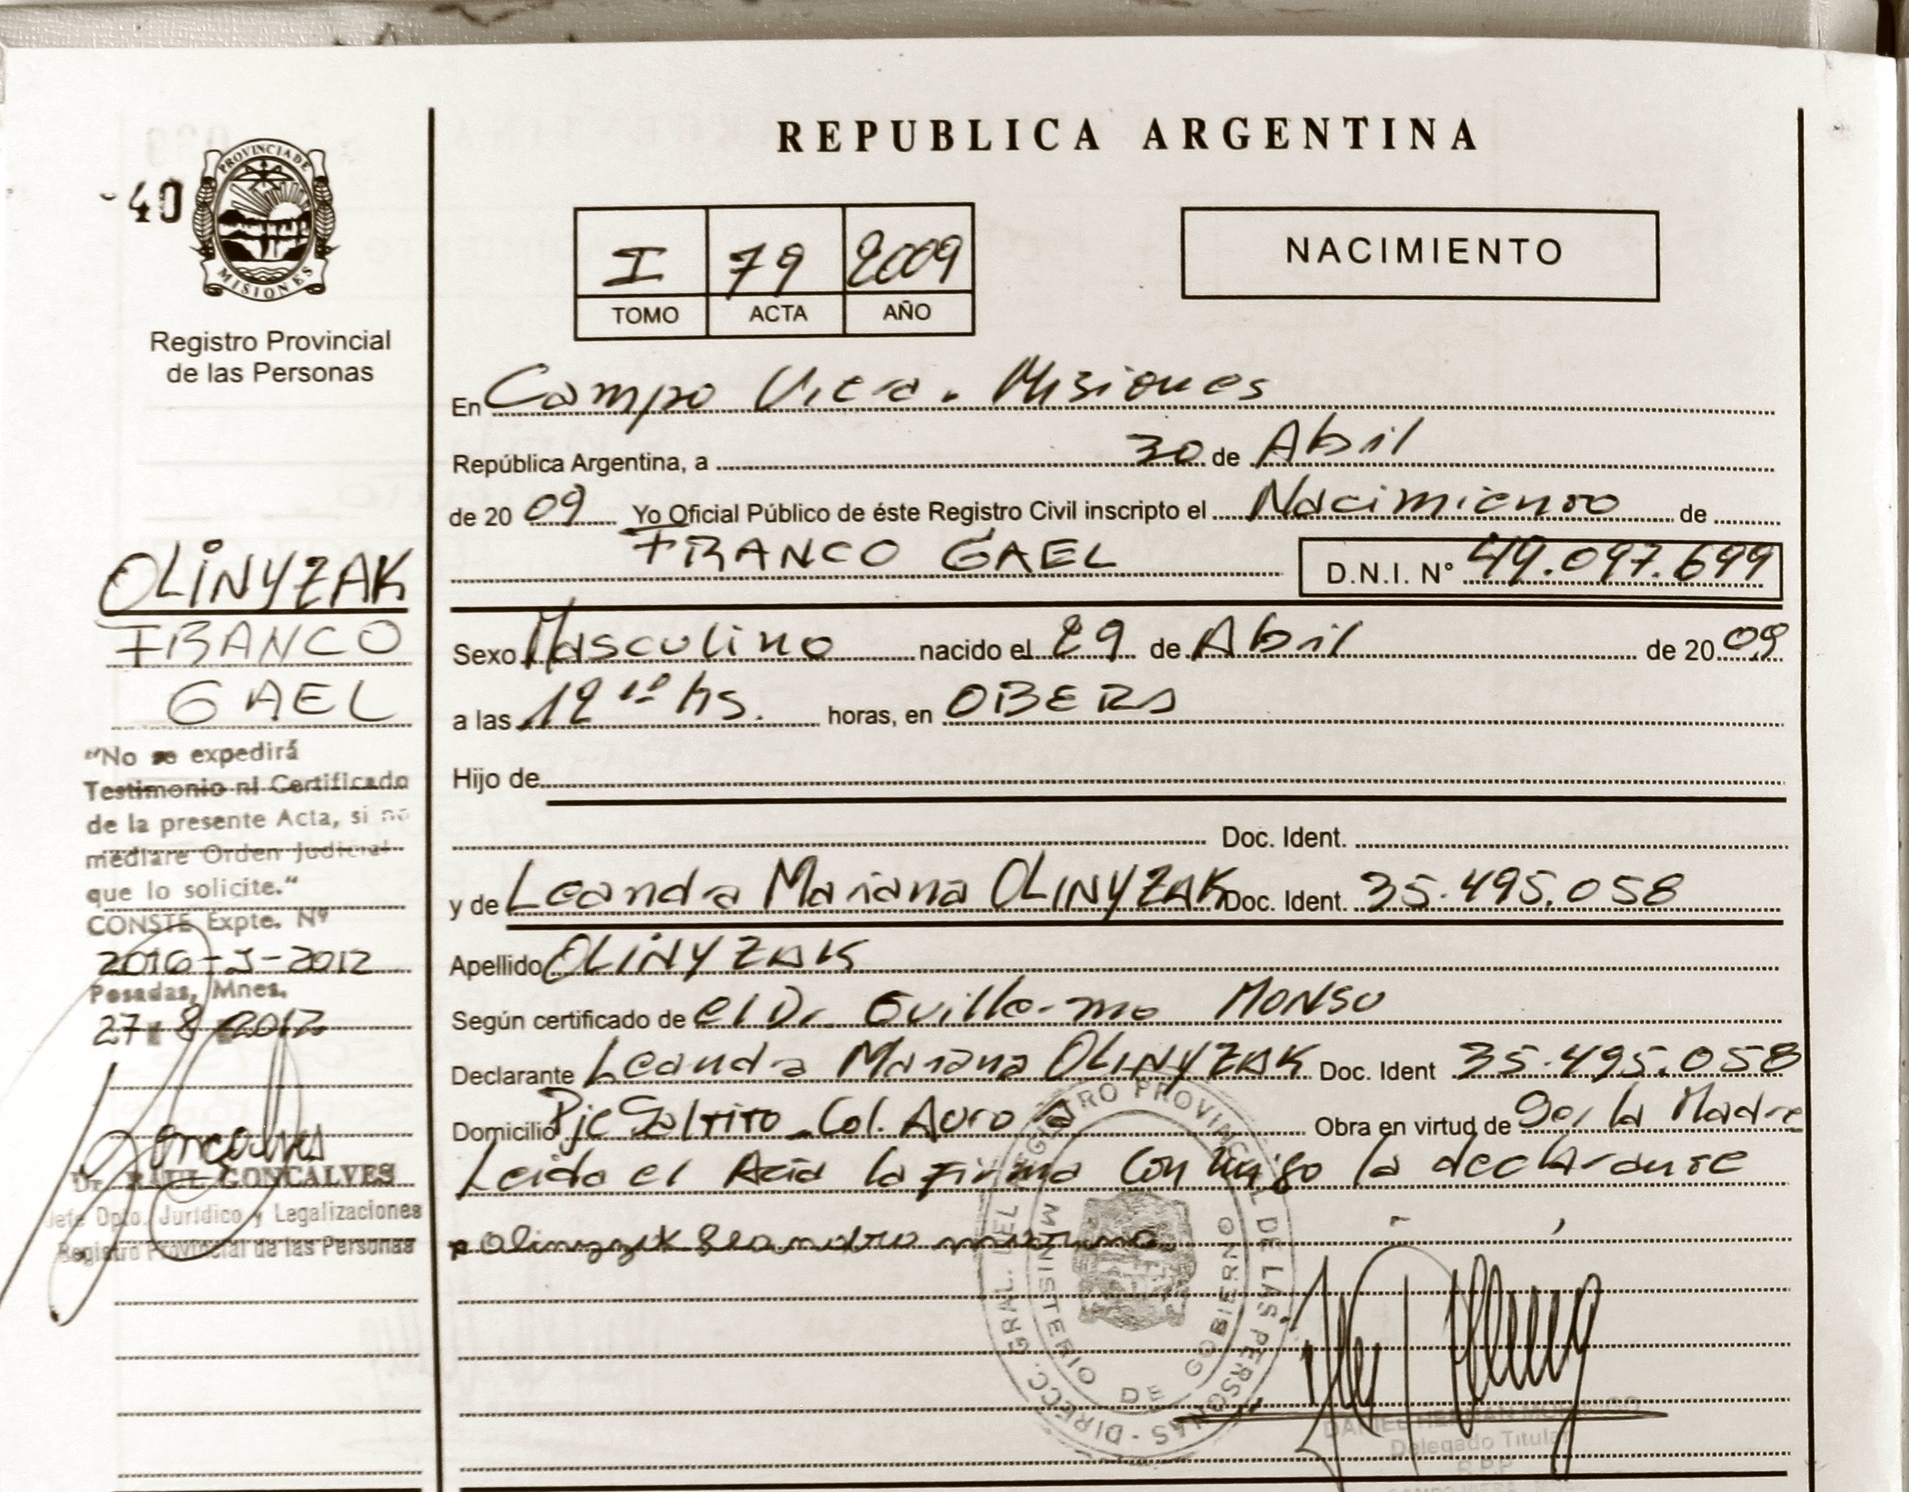 REPUBLICA ARGENTINA
40
PROVINCIA DE
MISIONES
Registro Provincial
de las Personas
I 79 2009
TOMO ACTA AÑO
NACIMIENTO
En Campo Viera. Misiones
República Argentina, a 30 de Abril
de 20 09 Yo Oficial Público de éste Registro Civil inscripto el Nacimiento de
FRANCO GAEL D.N.I. N° 49.097.699
Sexo Masculino nacido el 29 de Abril de 20 09
a las 12 10 hs. horas, en OBERA
Hijo de
Doc. Ident.
y de Leandra Mariana OLINYZAK Doc. Ident. 35.495.058
Apellido OLINYZAK
Según certificado de el Dr. Guillermo MONSU
Declarante Leandra Mariana OLINYZAK Doc. Ident 35.495.058
Domicilio Pje Saltito Col. Aurora Obra en virtud de Ser la Madre
Leida el Acta la firma Conmigo la declarante
OLINYZAK
FRANCO
GAEL
"No se expedirá
Testimonio ni Certificado
de la presente Acta, si no
mediare Orden Judicial
que lo solicite."
CONSTE Expte. Nº
2016-J-2012
Posadas, Mnes.
27 8 2012
Goncalves
Dr. RAUL GONCALVES
Jefe Dpto. Jurídico y Legalizaciones
Registro Provincial de las Personas
DIRECC. GRAL. DEL REGISTRO PROVINCIAL DE LAS PERSONAS
MINISTERIO DE GOBIERNO
DANIEL HERNAN
Delegado Titular